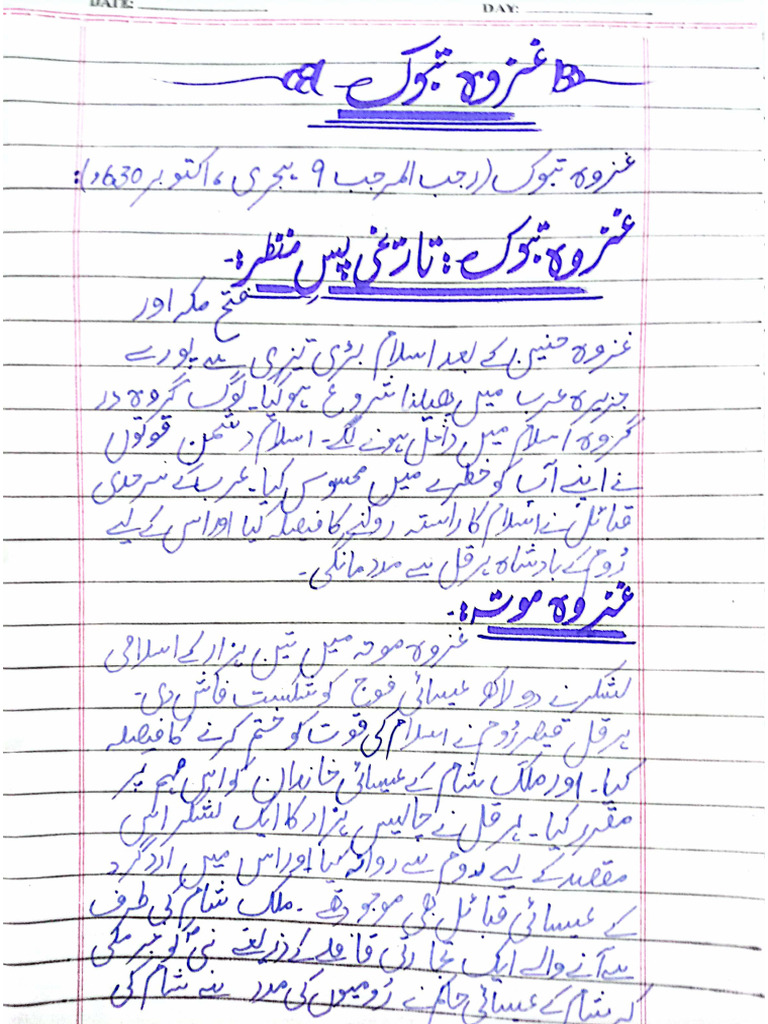 DATE: DAY:
غزوہ تبوک
غزوہ تبوک (رجب المرجب ۹ ہجری ، اکتوبر 630ء):
غزوہ تبوک : تاریخی پسِ منظر :-
فتح مکہ اور
غزوہ حنین کے بعد اسلام بڑی تیزی سے پورے
جزیرہ عرب میں پھیلنا شروع ہوگیا۔ لوگ گروہ در
گروہ اسلام میں داخل ہونے لگے۔ اسلام دشمن قوتوں
نے اپنے آپ کو خطرے میں محسوس کیا۔ عرب کے سرحدی
قبائل نے اسلام کا راستہ روکنے کا فیصلہ کیا اور اس کے لیے
رُوم کے بادشاہ ہرقل سے مدد مانگی۔
غزوہ موتہ :-
غزوہ موتہ میں تین ہزار کے اسلامی
لشکر نے دو لاکھ عیسائی فوج کو شکست فاش دی۔
ہرقل قیصر رُوم نے اسلام کی قوت کو ختم کرنے کا فیصلہ
کیا۔ اور ملک شام کے عیسائی خاندان کو اس مہم پر
مقرر کیا۔ ہرقل نے چالیس ہزار کا ایک لشکر اس
مقصد کے لیے روم سے روانہ کیا اور اس میں اردگرد
کے عیسائی قبائل بھی موجود تھے۔ ملک شام کی طرف
سے آنے والے ایک تجارتی قافلے کے ذریعے نبیؐ کو خبر ملی
کہ شام کے عیسائی حاکم نے رُومیوں کی مدد سے شام کی